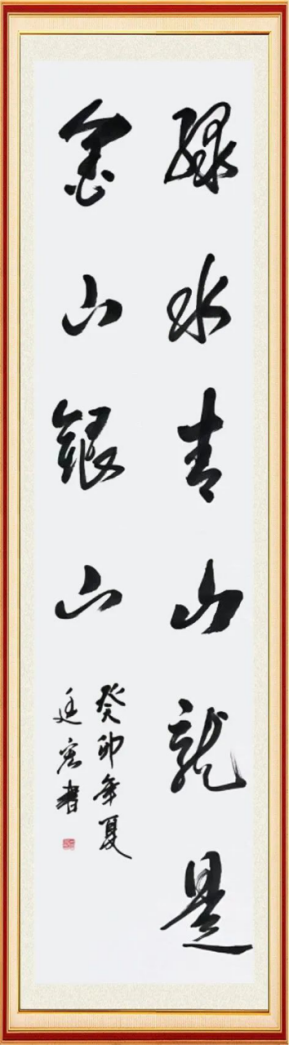 绿水青山就是
金山银山
癸卯年夏
廷宏書